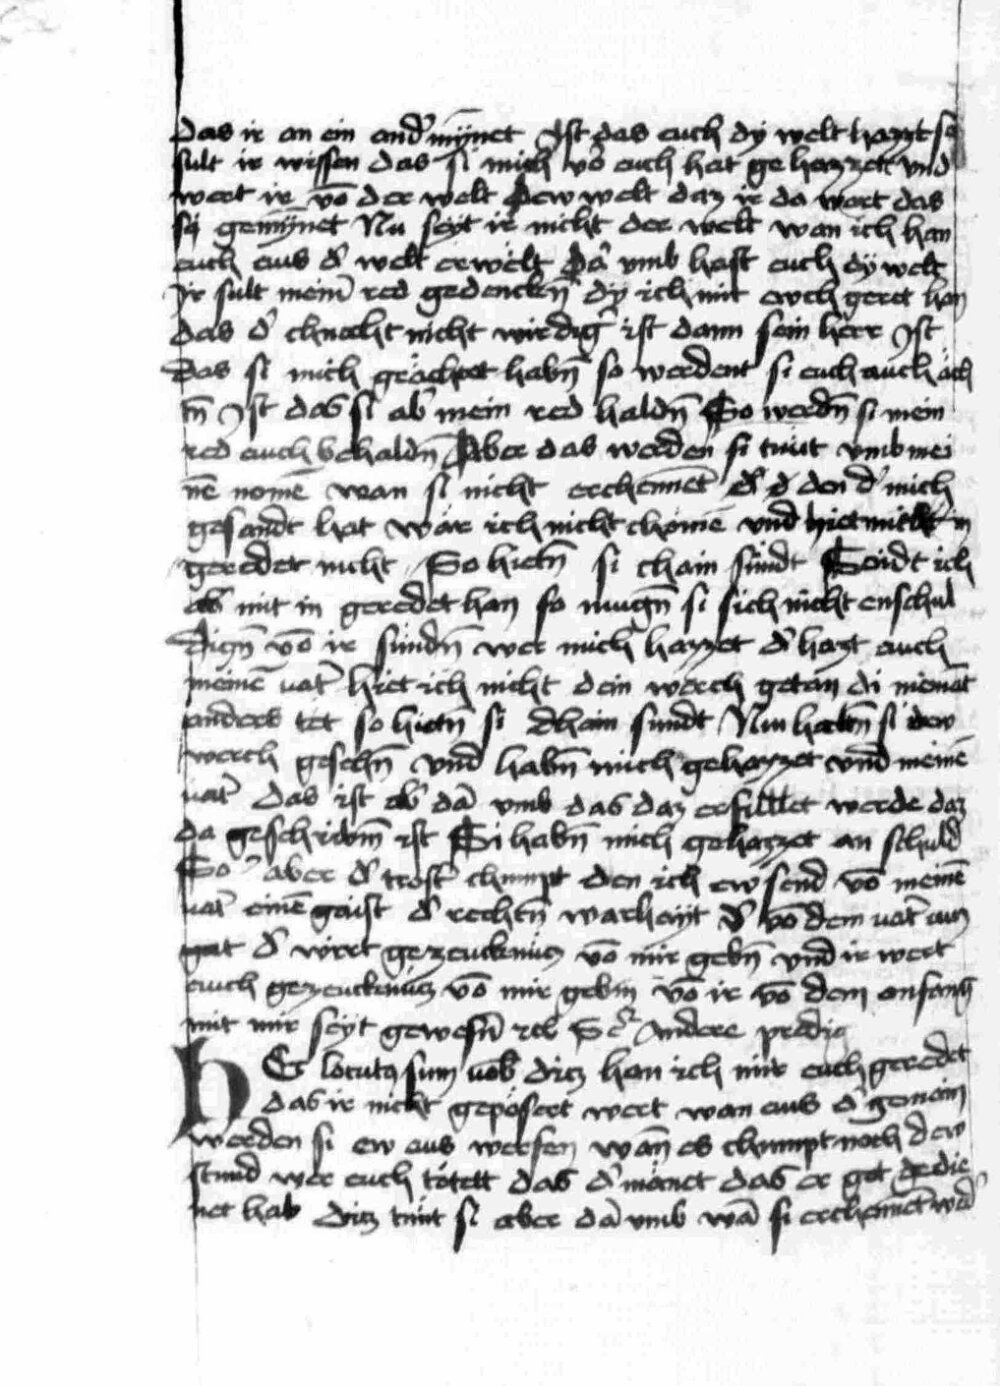 das ir an ein and' mÿnet Ist das euch dy welt hazzt so
sult ir wissen das si mich vō euch hat gehazzett vnd
wert ir vō der welt dew welt daz ir da wert das
sÿ gemÿnet Nu seyt ir nicht der welt wan ich han
euch aus d' welt erwelt Dā vmb hast euch dÿ welt
Ir sult mein' red gedencken dy ich mit ewch geret han
das d' chnecht nicht wirdig' ist dann sein herr Ist
das si mich geächtet habn̄ so werdent si euch auch äch
tn̄ Ist das si ab' mein red haldn̄ So werdn̄ si mein
red euch behaldn̄ Aber das werden si tuut vmb mei
nē nomē wan si nicht erchennēt den d' mich
gesandt hat wär ich nicht chömē vnd hiet mit in
geredet nicht So hietn̄ si chain sündt Seidt ich
ab' mit in geredet han so mugn̄ si sich nicht enschul
dign̄ vō ir sündn̄ wer mich hazzet d' hazt auch
meinē vat' hiet ich nicht dein werch getan di niemāt
anders tet so hietn̄ si dhain sundt Nu habn̄ si dew
werch gesehn̄ vnd habn̄ mich gehazzet vnd meinē
vat' das ist ab' dā vmb das daz erfüllet werde daz
da geschribn̄ ist Si habn̄ mich gehazzet an schuld
So aber d' trost' chumpt den ich ew send vō meinē
vat' einē gaist d' rechtn̄ warhayt d' vō dem vat' aus
gat d' wirt gezeucknüs vō mir gebn̄ vnd ir wert
auch gezeucknüs vō mir gebn̄ vō ir vō dem anfang
mit mir seyt gewesn̄ Andere predig
HEc locutus sum vob' ditz han ich mit euch geredet
das ir nicht gepösert wert wan aus d' gemain
werden si ew aus werfen wān es chumpt noch dew
stund wer euch tötett das d' mainet das er got gedie
net hab ditz tuut si aber dā vmb wā si erchennēt wed'